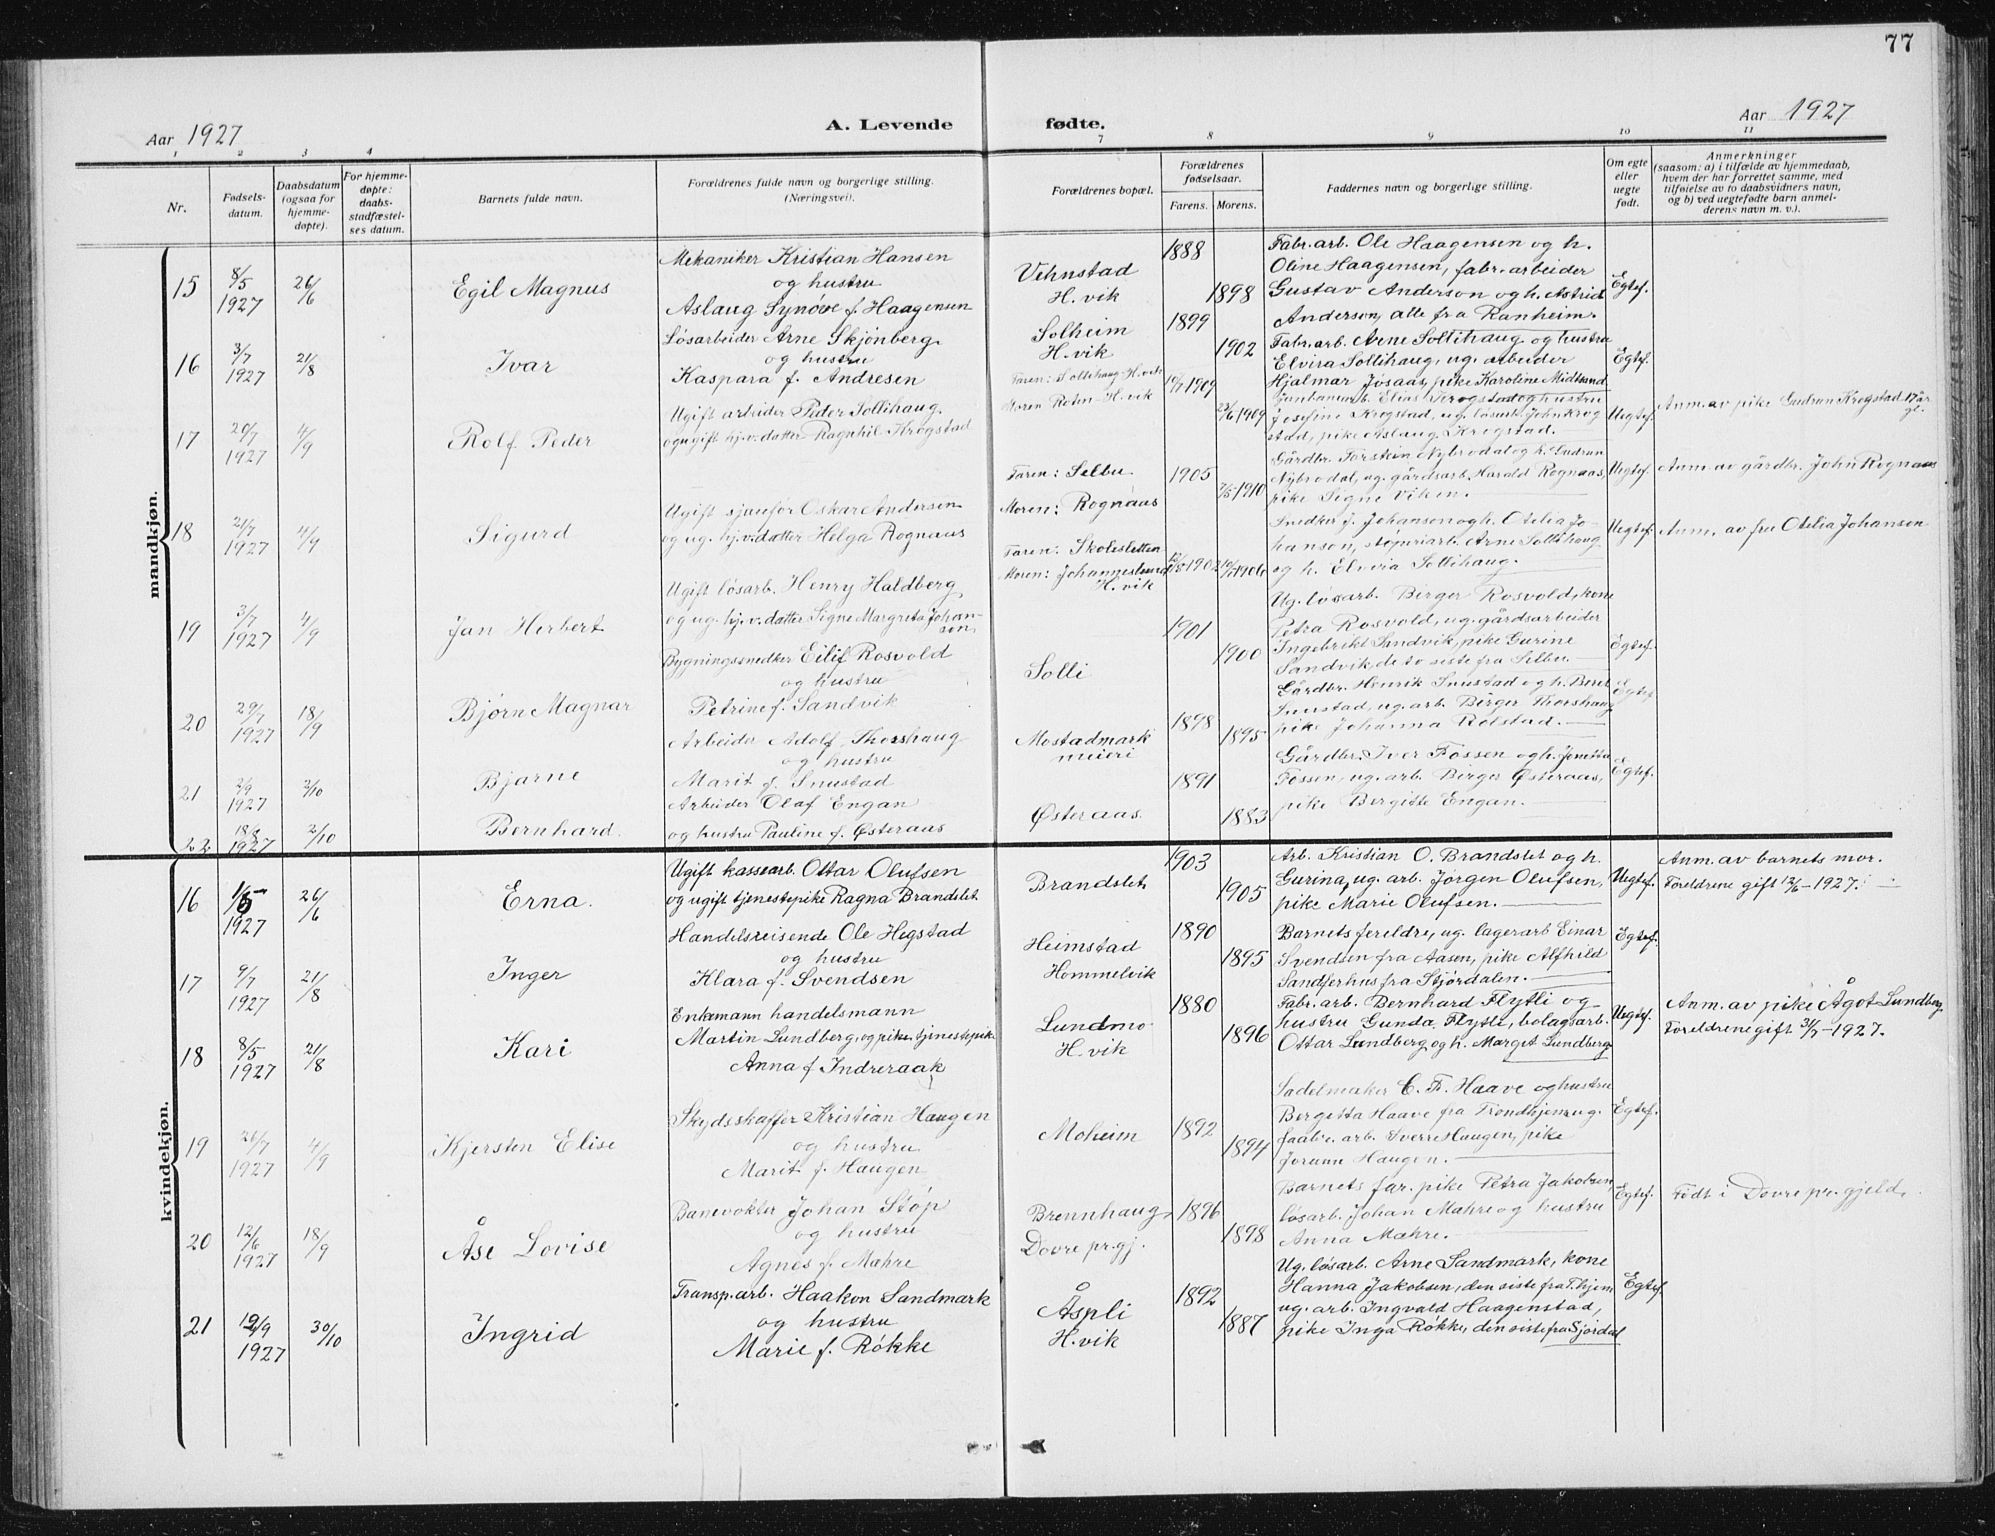 77
Aar 1927
A. Levende
fødte.
Aar 1927
1 2 3 4 7 8 9 10 11
Nr.
Fødsels-
datum.
Daabsdatum
(ogsaa for
hjemme-
døpte).
For hjemme-
døpte:
daabs-
stadfæstel-
ses datum.
Barnets fulde navn.
Forældrenes fulde navn og borgerlige stilling.
(Næringsvei).
Forældrenes bopæl.
Forældrenes
fødselsaar.
Farens. Morens.
Faddernes navn og borgerlige stilling.
Om egte
eller
uegte
født.
Anmerkninger
(saasom: a) i tilfælde av hjemmedaab,
hvem der har forrettet samme, med
tilføielse av to daabsvidners navn,
og b) ved uegtefødte barn anmel-
derens navn m. v.).
mandkjøn.
15
8/5
1927
26/6
Egil Magnus
Mekaniker Kristian Hansen
og hustru
Aslaug Synøve f. Haagensen
Vehnstad
H.vik
1888
1898
Fabr. arb. Ole Haagensen og h.
Oline Haagensen, fabr. arbeider
Gustav Anderson og h. Astrid
Anderson, alle fra Ranheim.
Egtef.
16
3/7
1927
21/8
Ivar
Løsarbeider Arne Skjønberg
og hustru
Kaspara f. Andresen
Solheim
H.vik
1899
1902
Fabr. arb. Arne Sollihaug og hustru
Elvira Sollihaug, ug. arbeider
Hjalmar Jøsaas, pike Karoline Midtsand
Egtef.
17
20/7
1927
4/9
Rolf Peder
Ugift arbeider Peder Sollihaug
og ugift hj.v. datter Ragnhil Krogstad
Faren: Sollihaug H.vik
Moren Roten - H.vik
10/7 1909
23/6 1909
Elias Krogstad og hustru
Josefine Krogstad, ug. løsarb. John Krog
stad, pike Aslaug Krogstad.
Uegtef.
Anm. av pike Gudrun Krogstad 17 år
gl.
18
21/7
1927
4/9
Sigurd
Ugift sjaufør Oskar Andersen
og ug. hj.v. datter Helga Rognaas
Faren: Selbu
Moren: Rognaas
1905
2/5 1910
Gårdbr. Torstein Nybrodal og h. Gudrun
Nybrodal, ug. gårdsarb. Harald Rognaas,
pike Signe Viken.
Uegtef.
Anm. av gårdbr. John Rognaas
19
3/7
1927
4/9
Jan Herbert
Ugift løsarb. Henry Haldberg
og ug. hj.v. datter Signe Margreta Johan-
son
Faren: Skolesletten
Moren: Johanneslund
H.vik
1906
Snedker J. Johanson og h. Otelia Jo-
hanson, støperiarb. Arne Sollihaug
og h. Elvira Sollihaug.
Uegtef.
Anm. av fru Otelia Johansen
20
29/7
1927
18/9
Bjørn Magnar
Bygningssnedker Eilif Rosvold
og hustru
Petrine f. Sandvik
Solli
1901
1900
Ug. løsarb. Birger Rosvold, kone
Petra Rosvold, ug. gårdsarbeider
Ingebrikt Sandvik, pike Gurine
Sandvik, de to siste fra Selbu.
Egtef.
21
2/9
1927
2/10
Bjarne
Arbeider Adolf Thorshaug
og hustru
Marit f. Snustad
Mostadmark
meieri
1898
1895
Gårdbr. Henrik Snustad og h. Beret
Snustad, ug. arb. Birger Thorshaug
pike Johanna Rolstad.
Egtef.
22
18/8
1927
2/10
Bernhard.
Arbeider Olaf Engan
og hustru Pauline f. Østeraas
Østeraas
1891
1883
Gårdbr. Iver Fossen og h.
Fossen, ug. arb. Birger Østeraas,
pike Bergitte Engan.
Egtef.
kvindekjøn.
16
1927
26/6
Erna.
Ugift kassearb. Ottar Olufsen
og ugift tjenestepike Ragna Brandslet
Brandslet
1903
1905
Arb. Kristian O. Brandslet og h.
Gurina, ug. arb. Jørgen Olufsen,
pike Marie Olufsen.
Uegtef.
Anm. av barnets mor.
Foreldrene gift 12/6 - 1927.
17
9/7
1927
21/8
Inger
Handelsreisende Ole Hegstad
og hustru
Klara f. Svendsen
Heimstad
Hommelvik
1890
1895
Barnets foreldre, ug. lagerarb Einar
Svendsen fra Aasen, pike Alfhild
Sandferhus fra Stjørdalen.
Egtef.
18
8/5
1927
21/8
Kari
Enkemann handelsmann
Martin Lundberg, og pike, tjenestepike
Anna f Indreraak
Lundmo
H.vik
1880
1896
Fabr. arb. Bernhard Flytli og
hustru Gunda Flytli, bolagsarb.
Ottar Lundberg og h. Margit Lundberg
Uegtef.
Anm. av pike Ågot Lundberg
Foreldrene gift 31/7 - 1927.
19
21/7
1927
4/9
Kjersten Elise
Skydsskaffer Kristian Haugen
og hustru
Marit f. Haugen
Moheim
1892
1894
Sadelmaker C. F. Haave og hustru
Bergitta Haave fra Trondhjem, ug.
faabr. arb. Sverre Haugen, pike
Jorunn Haugen.
Egtef.
20
12/6
1927
18/9
Åse Lovise
Banevokter Johan Støp
og hustru
Agnes f. Mæhre
Brennhaug
Dovre pr.gj.
1896
1898
Barnets far, pike Petra Jakobsen,
løsarb. Johan Mæhre og hustru
Anna Mæhre.
Egtef.
Født i Dovre pr. gjeld.
21
1927
30/10
Ingrid
Transp. arb. Haakon Sandmark
og hustru
Marie f. Røkke
Åspli
H.vik
1892
1887
Ug. løsarb. Arne Sandmark, kone
Hanna Jakobsen, den siste fra T.hjem
ug. arb. Ingvald Haagenstad,
pike Inga Røkke, den siste fra Sjördal
Egtef.